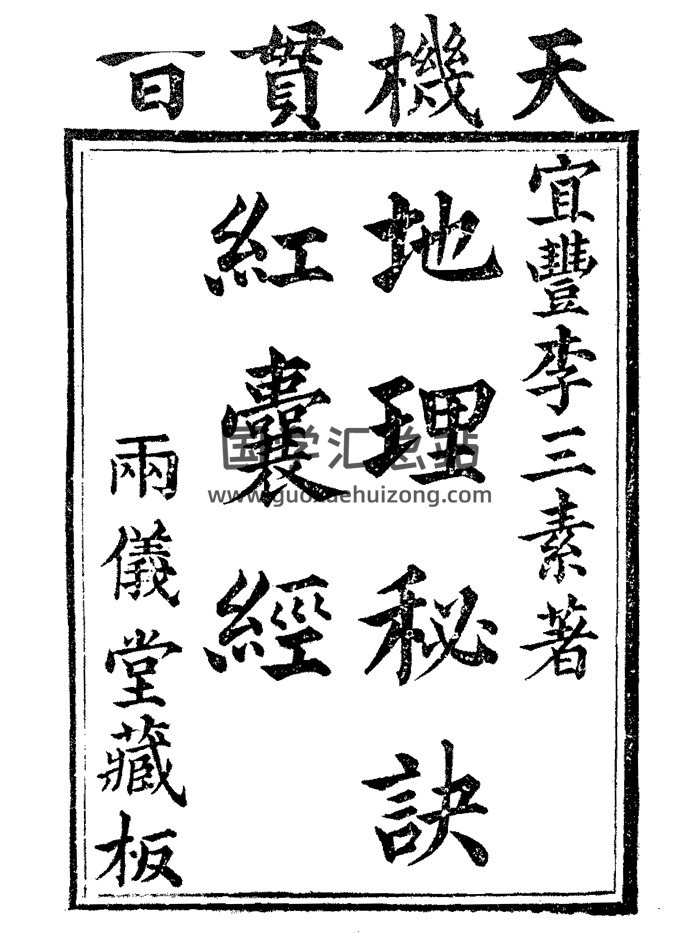 天機貫百
宜豐李三素著
地理秘訣
紅囊經
兩儀堂藏板
国学汇总站
www.guoxuehuizong.com